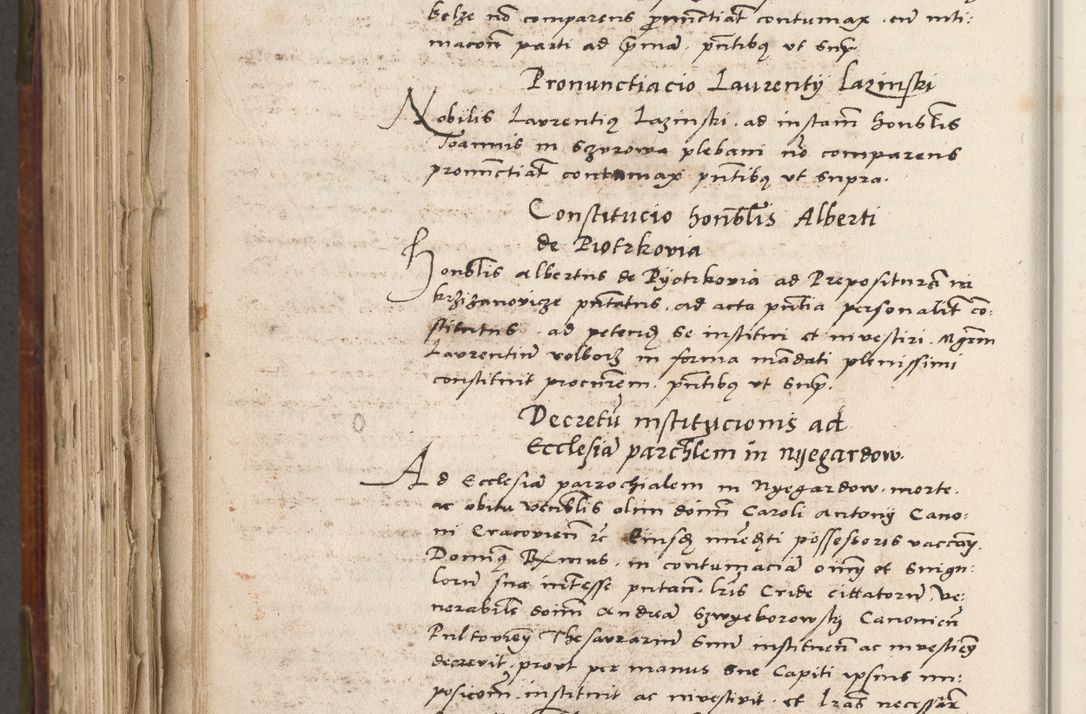 belze nō comparens pronūctiat contumax . eū inti:
macōni parti ad p̄ma . p̄ntibq ut supr.
Pronunctiacio Laurentÿ Lazinski
Nobilis Laurentiq Lazinski . ad instam̄ honblis
Joannis in Szurowa plebani nō comparens
pronūctiat contumax p̄ntibq ut supra.
Constitucio honblis Alberti
de Piotrkovia
Honblis Albertus de Pyotrkovia ad Preposituram in
krzizanovicze p̄ntatus . ad acta p̄ntia personalit co:
stitutus . ad petend se institui et investiri . Mgrm
Laurentiū volborz in forma mādati plenissimi
constituit procurem . p̄ntibq ut supr.
Decretū institucionis ad
Ecclesiā parchlem in Nyegardow.
Ad Ecclesiā parrochialem in Nyegardow . morte .
ac obitu venblis olim domini Caroli Antonij Cano:
ni Cracovien̄ rc Eiusd īmedi possessoris vaccan̄.
Dominq Rmus . in contumaciā oīm et singu:
lorū sua intesse putan̄ . lris Cride cittatorū Ve:
nerabile domin̄ Andreā Szwyeborowsky Canonicū
Pultovien̄ Thesaurariū suū instituen̄ ac investien̄
decrevit . prout per manus sue Capiti ipsius im:
posicom . instituit ac investivit . et lras necessar